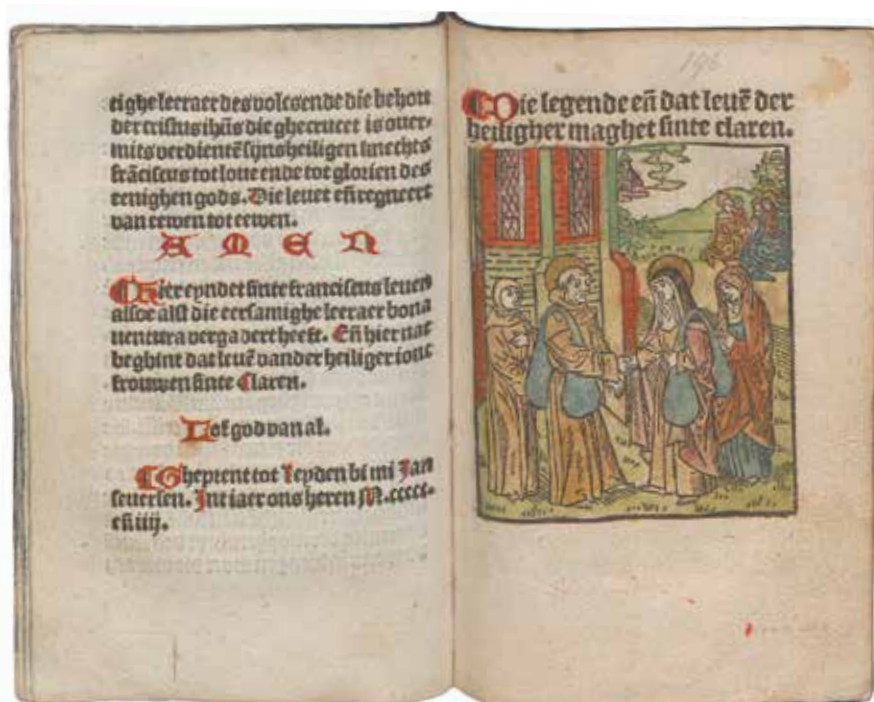 tighe leeraer des volcs ende die behou
der cristus ihūs die ghecrucet is ouer-
mits verdientē sijns heiligen knechts
frāciscus tot loue ende tot glorien des
eenighen gods. Die leuet eñ regneert
van eewen tot eewen.
A M E N
Hier eyndet sinte franciscus leuen
alsoe alst die eersamighe leeraer bona
uentura vergadert heeft. Eñ hier nae
beghint dat leuē vander heiliger ionc
frouwen sinte Claren.
Lof god van al.
Gheprent tot Leyden bi mi Jan
seuersen. Int iaer ons heren M.ccccc.
eñ iiij.
196
Die legende eñ dat leuē der
heiligher maghet sinte claren.